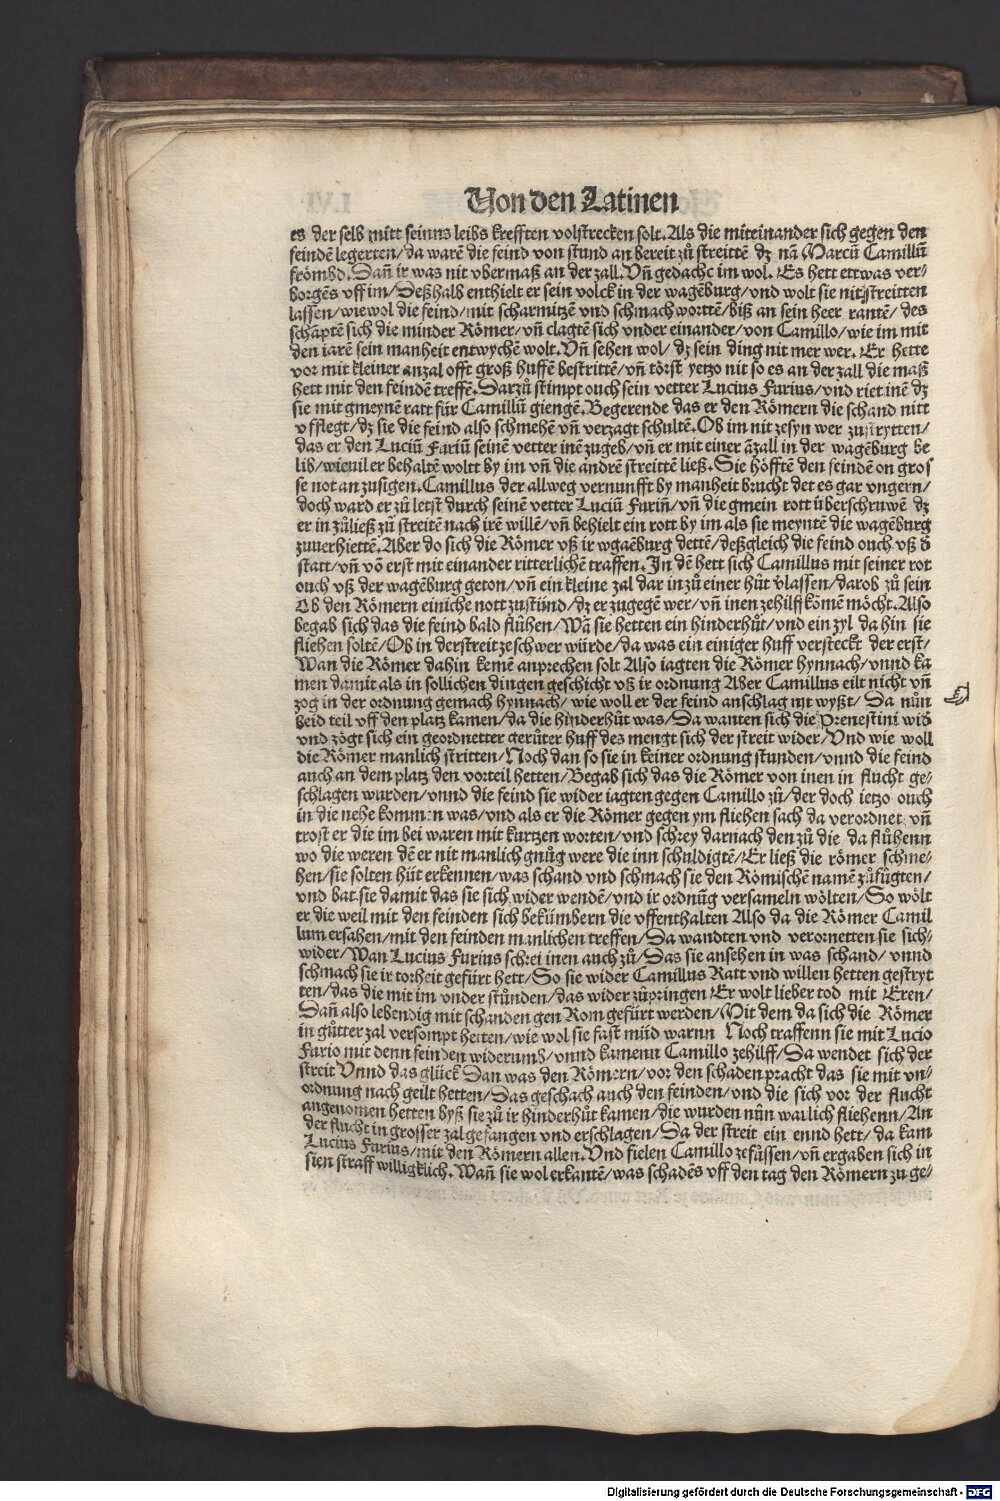 Von den Latinen
es der selb mitt seinns leibs krefften volstrecken solt. Als die miteinander sich gegen den
feindē legerten/da warē die feind von stund an bereit zů streittē dz nā Marcū Camillū
frömbd. Dañ ir was nit vbermaß an der zall. Vñ gedachc im wol. Es hett ettwas ver⸗
borgēs vff im/Deßhalb enthielt er sein volck in der wagēburg/vnd wolt sie nit streitten
lassen/wiewol die feind/mit scharmitzē vnd schmach wortē/biß an sein heer rantē/des
schāptē sich die minder Römer/vñ clagtē sich vnder einander/von Camillo/wie im mit
den iarē sein manheit entwychē wolt. Vñ sehen wol/dz sein ding nit mer wer. Er hette
vor mit kleiner anzal offt groß huffē bestrittē/vñ törst yetzo nit so es an der zall die maß
hett mit den feindē treffē. Darzů stimpt ouch sein vetter Lucius Furius/vnd riet inē dz
sie mit gmeynē ratt für Camillū giengē. Begerende das er den Römern die schand nitt
vfflegt/dz sie die feind also schmehē vñ verzagt schultē. Ob im nit zesyn wer zustrytten/
das er den Luciū Fariū seinē vetter inē zugeb/vñ er mit einer āzall in der wagēburg be
lib/wieuil er behaltē woltt by im vñ die andrē streittē ließ. Sie höfftē den feindē on gros
se not an zusigen. Camillus der allweg vernunfft by manheit brucht det es gar vngern/
doch ward er zů letst durch seinē vetter Luciū Furiū/vñ die gmein rott überschruwē dz
er in zůließ zů streitē nach irē willē/vñ behielt ein rott by im als sie meyntē die wagēburg
zuuerhiettē. Aber do sich die Römer vß ir wgaēburg dettē/deßgleich die feind ouch vß d̄
statt/vñ vō erst mit einander ritterlichē traffen. In dē hett sich Camillus mit seiner rot
ouch vß der wagēburg geton/vñ ein kleine zal dar in zů einer hůt v̄lassen/darob zů sein
Ob den Römern einiche nott zustünd/dz er zugegē wer/vñ inen zehilff kōmē möcht. Also
begab sich das die feind bald fluhen/Wā sie hetten ein hinderhůt/vnd ein zyl da hin sie
fliehen soltē/Ob in der streit ze schwer würde/da was ein einiger huff versteckt der erst/
Wan die Römer dahin kemē anprechen solt Also iagten die Römer hynnach/vnnd ka
men damit als in sollichen dingen geschicht vß ir ordnung Aber Camillus eilt nicht vñ
zog in der ordnung gemach hynnach/wie woll er der feind anschlag nit wyßt/Da nůn
beid teil vff den platz kamen/da die hinderhůt was/Da wanten sich die Prenestini wid̄
vnd zögt sich ein geordnetter gerůter huff des mengt sich der streit wider/Vnd wie woll
die Römer manlich stritten/Noch dan so sie in keiner ordnung stunden/vnnd die feind
auch an dem platz den vorteil hetten/Begab sich das die Römer von inen in flucht ge⸗
schlagen wurden/vnnd die feind sie wider iagten gegen Camillo zů/der doch ietzo ouch
in die nehe kommen was/vnd als er die Römer gegen ym fliehen sach da verordnet vñ
trost er die im bei waren mit kurtzen worten/vnd schrey darnach den zů die da fluhenn
wo die weren dē er nit manlich gnůg were die inn schuldigtē/Er ließ die römer schme⸗
hen/sie solten hüt erkennen/was schand vnd schmach sie den Römischē namē zůfügten/
vnd bat sie damit das sie sich wider wendē/vnd ir ordnūg versameln wölten/So wölt
er die weil mit den feinden sich bekümbern die vffenthalten Also da die Römer Camil
lum ersahen/mit den feinden manlichen treffen/Da wandten vnd verornetten sie sich⸗
wider/Wan Lucius Furius schrei inen auch zů/Das sie ansehen in was schand/vnnd
schmach sie ir torheit gefürt hett/So sie wider Camillus Ratt vnd willen hetten gestryt
ten/das die mit im vnder stůnden/das wider zůpringen Er wolt lieber tod mit Eren/
Dañ also lebendig mit schanden gen Rom gefürt werden/Mit dem da sich die Römer
in gůtter zal versompt hetten/wie wol sie fast müd warnn Noch traffenn sie mit Lucio
Furio mit denn feinden widerumb/vnnd kamenn Camillo zehilff/Da wendet sich der
streit Vnnd das glück Dan was den Römern/vor den schaden pracht das sie mit vn⸗
ordnung nach geilt hetten/Das geschach auch den feinden/vnd die sich vor der flucht
angenomen hetten byß sie zů ir hinderhůt kamen/die wurden nůn warlich fliehenn/An
der flucht in grosser zal gefangen vnd erschlagen/Da der streit ein ennd hett/da kam
Lucius Furius/mit den Römern allen. Vnd fielen Camillo zefüssen/vñ ergaben sich in
sien straff willigklich. Wañ sie wol erkantē/was schadēs vff den tag den Römern zu ge⸗
Digitalisierung gefördert durch die Deutsche Forschungsgemeinschaft - DFG